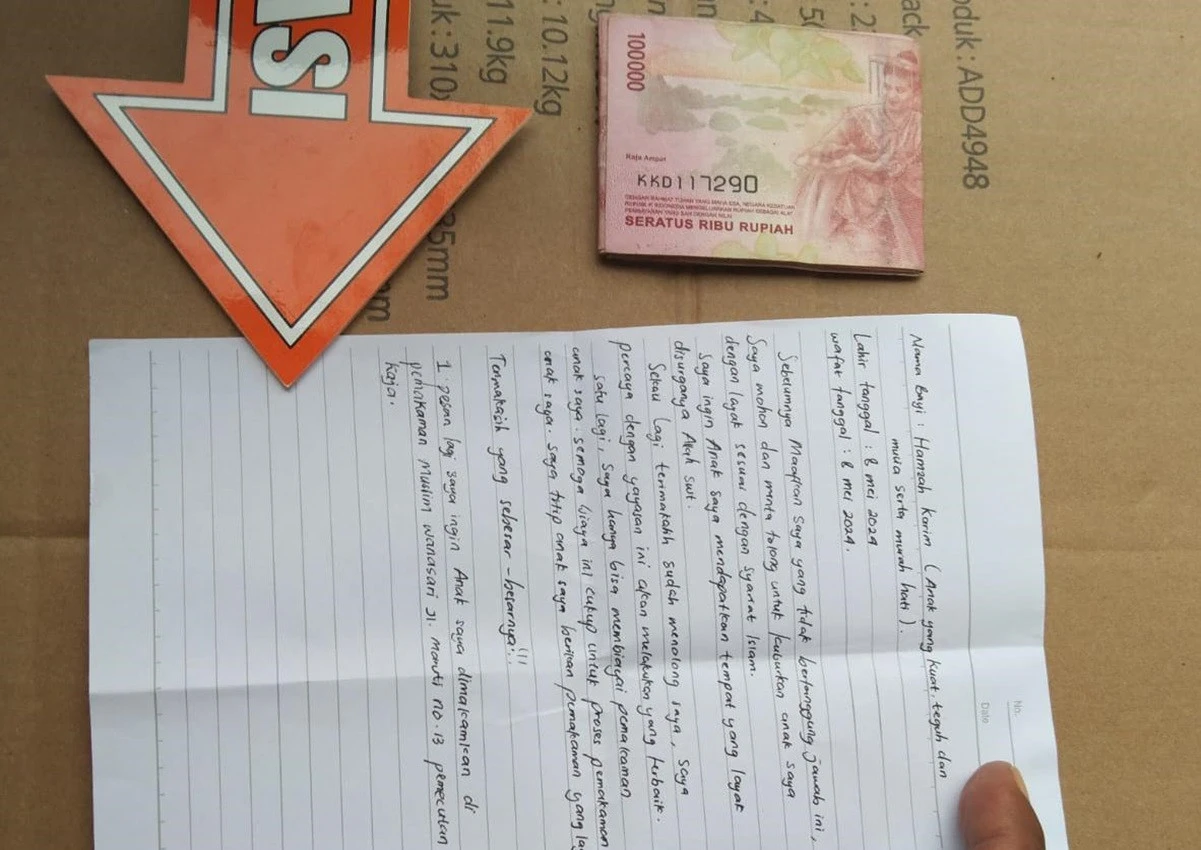 oduk : ADD4948
ack
: 10.12kg
11.9kg
uk : 310x
35mm
mm
IS
100000
Raja Ampat
KKD117290
DENGAN RAHMAT TUHAN YANG MAHA ESA, NEGARA KESATUAN
REPUBLIK INDONESIA MENGELUARKAN RUPIAH SEBAGAI ALAT
PEMBAYARAN YANG SAH DENGAN NILAI
SERATUS RIBU RUPIAH
No.
Date
Nama Bayi : Hamzah Karim ( Anak yang kuat, teguh dan
mulia serta murah hati ).
Lahir tanggal : 8 mei 2024
wafat tanggal : 8 mei 2024.
Sebelumnya Maafkan Saya yang tidak bertanggung jawab ini,
Saya mohon dan minta tolong untuk kuburkan anak saya
dengan layak sesuai dengan syariat Islam.
Saya ingin Anak saya mendapatkan tempat yang layak
disurganya Allah swt.
Sekali lagi terimakasih sudah menolong saya, saya
percaya dengan yayasan ini akan melakukan yang terbaik.
Satu lagi, saya hanya bisa membiayai pemakaman
anak saya. semoga biaya ini cukup untuk proses pemakaman
anak saya. saya titip anak saya berikan pemakaman yang la
Terimakasih yang sebesar-besarnya!!!
1 pesan lagi saya ingin Anak saya dimakamkan di
pemakaman muslim wanasari Jl. Maruti no. 13 pemecutan
Kaja.